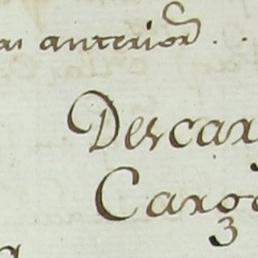 anterior . .
Descar
Carg
3